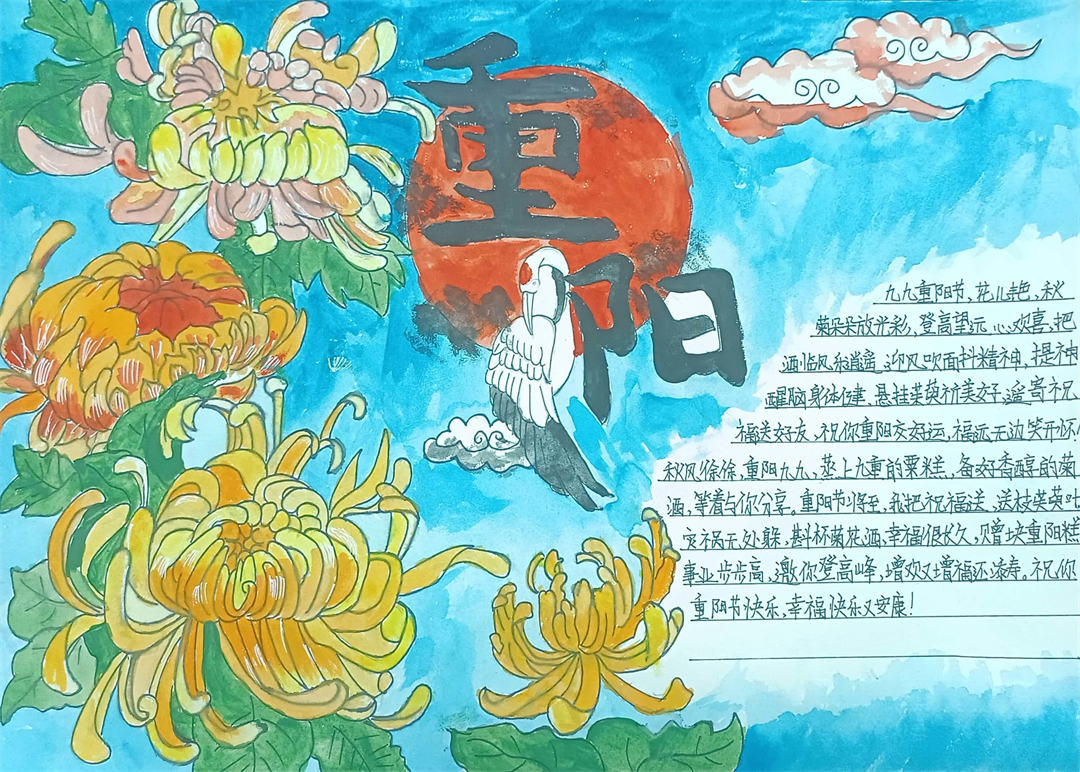 重阳
九九重阳节,花儿艳,秋
菊朵朵放光彩,登高望远心欢喜,把
酒临风我逍遥,迎风吹面抖精神,提神
醒脑身体健,悬挂茱萸祈美好,遥寄祝
福送好友,祝你重阳交好运,福远无边笑开怀!
秋风徐徐,重阳九九、蒸上九重的粟糕,备好香醇的菊
酒,等着与你分享。重阳节将至,我把祝福送、送枝茱萸吐
灾祸无处躲,斟杯菊花酒,幸福很长久,赠块重阳糕
事业步步高,邀你登高峰,增欢又增福还添寿。祝你
重阳节快乐,幸福快乐又安康!